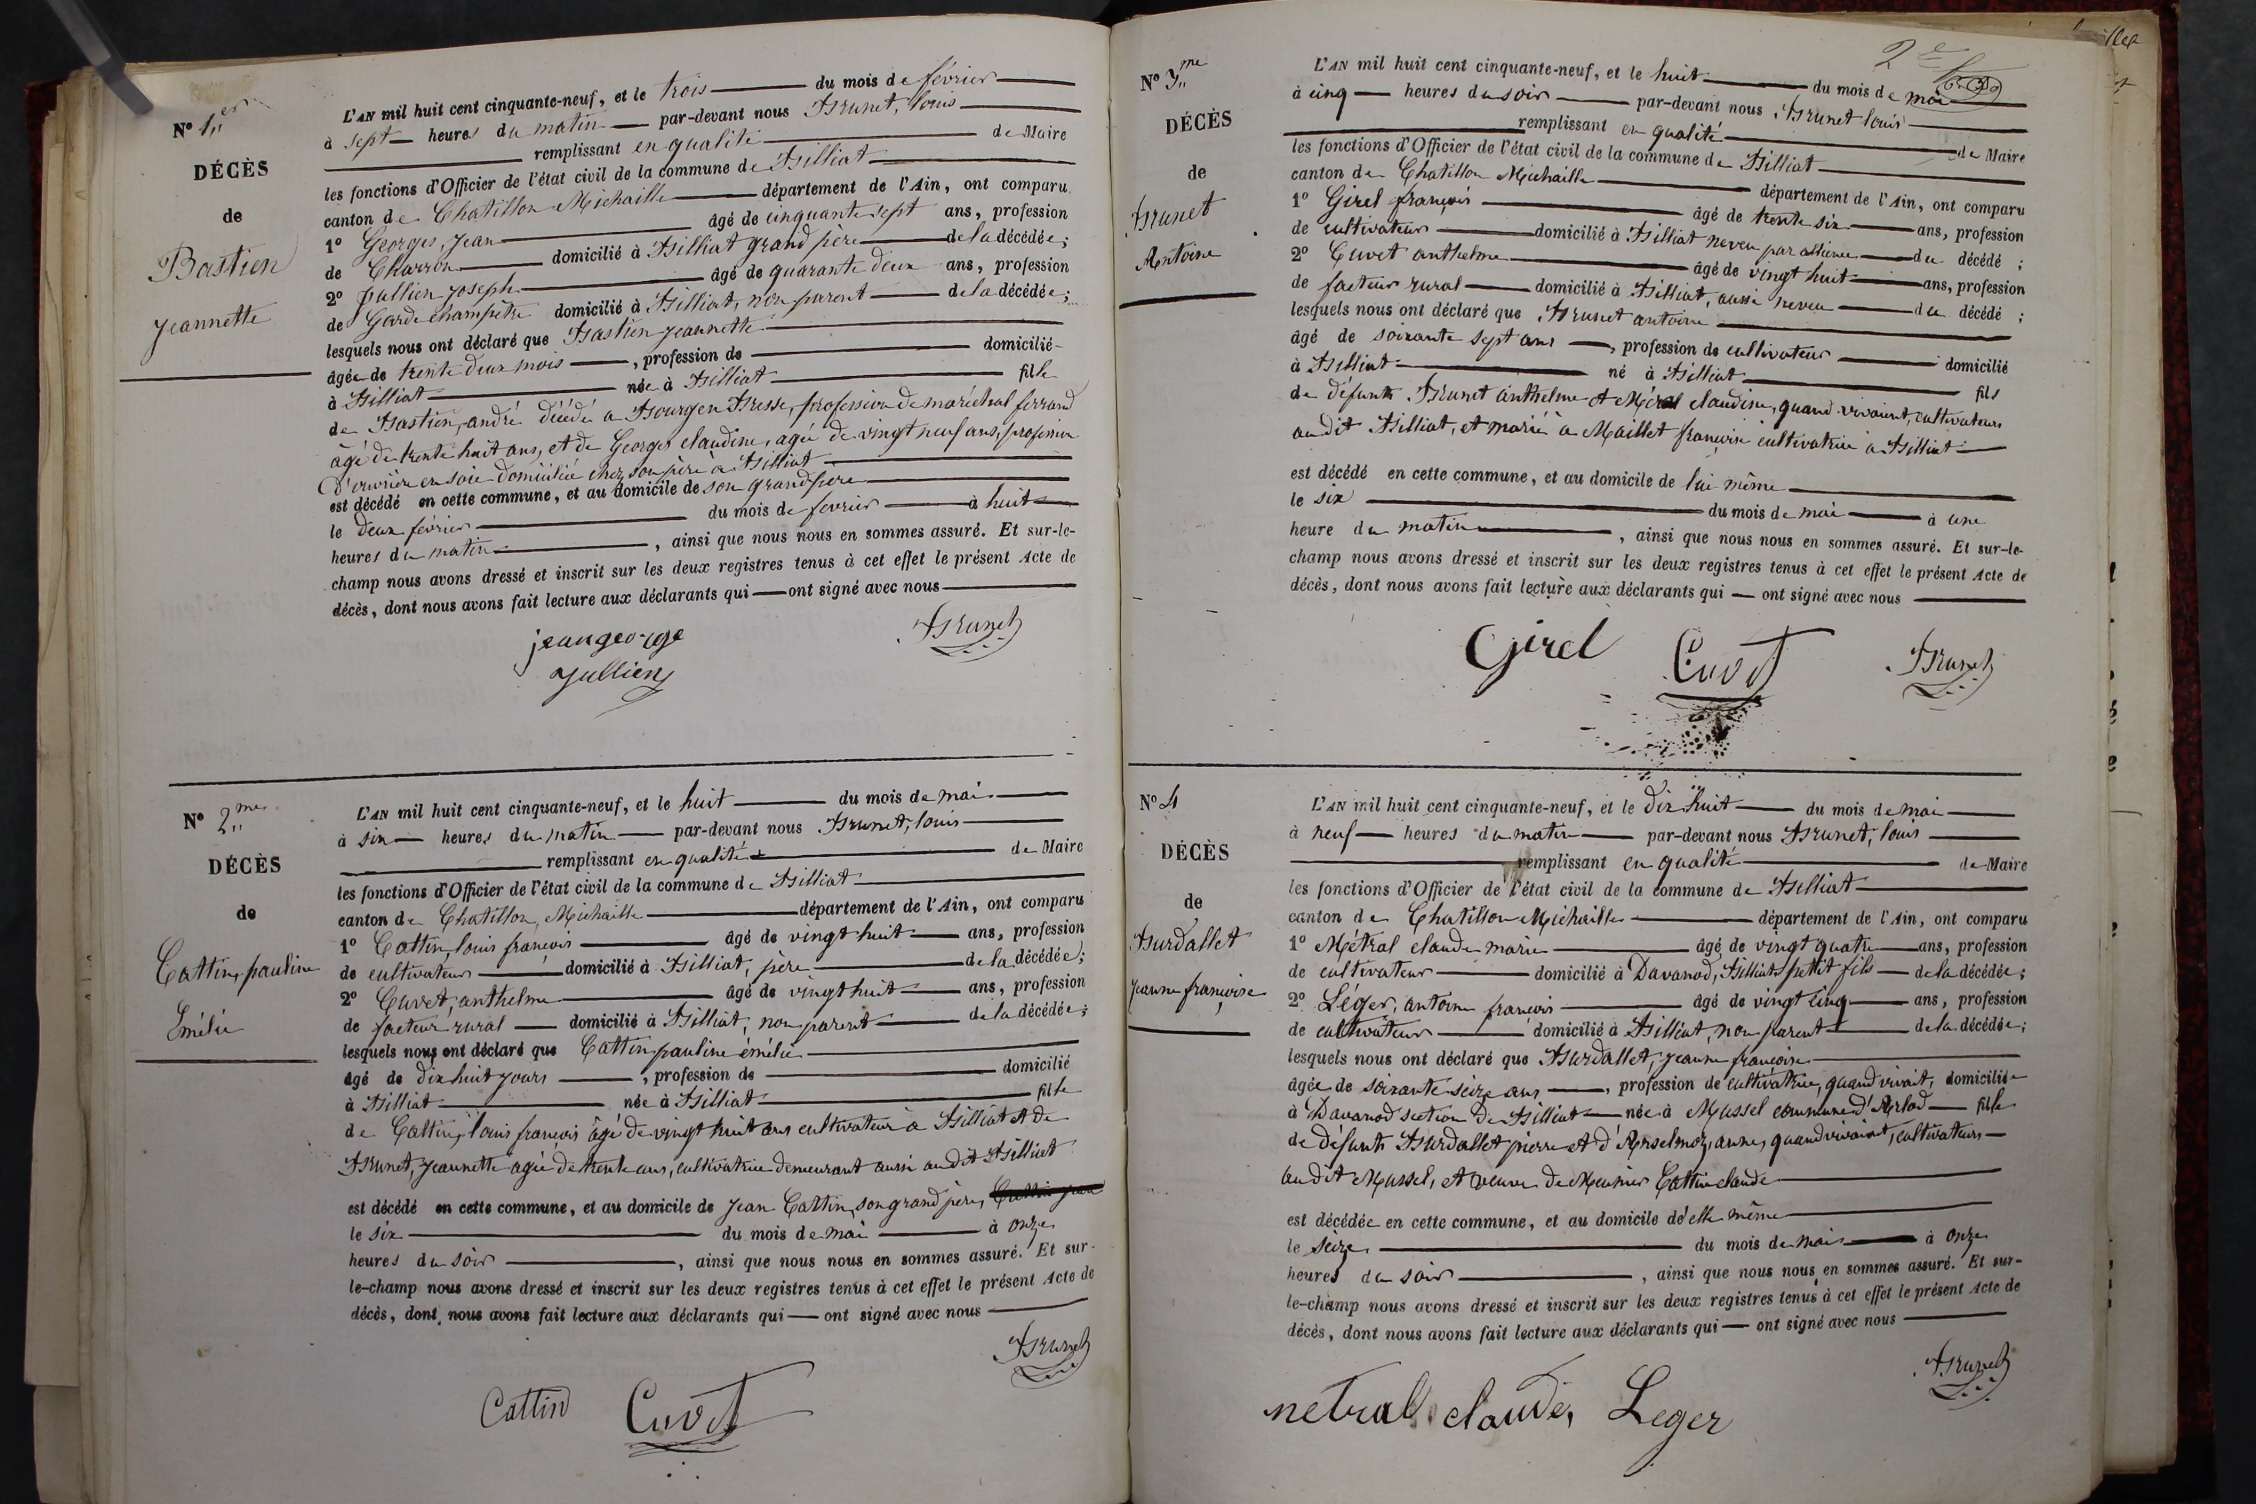 N° 1er
DÉCÈS
de
Bastien
Jeannette
L'AN mil huit cent cinquante-neuf, et le trois du mois de février
à sept heures du matin par-devant nous Brunet, louis
remplissant en qualité de Maire
les fonctions d'Officier de l'état civil de la commune de Billiat
canton de Chatillon Michaille département de l'Ain, ont comparu
1° Georges, Jean âgé de cinquante sept ans, profession
de Charron domicilié à Billiat grand père de la décédée;
2° Jullien Joseph âgé de quarante deux ans, profession
de Garde champêtre domicilié à Billiat, non parent de la décédée;
lesquels nous ont déclaré que Bastien Jeannette
âgée de trente deux mois, profession de domicilié
à Billiat née à Billiat fille
de Bastien, andré décédé a Bourgen Bresse, profession de maréchal ferrand
âgé de trente huit ans, et de Georges claudine, agée de vingt neuf ans, profession
d'ouvrière en soie domiciliée chez son père à Billiat
est décédé en cette commune, et au domicile de son grand père
le deux février du mois de fevrier à huit
heures du matin, ainsi que nous nous en sommes assuré. Et sur-le-
champ nous avons dressé et inscrit sur les deux registres tenus à cet effet le présent Acte de
décès, dont nous avons fait lecture aux déclarants qui ont signé avec nous
jean george
Brunet
Jullien
N° 2me
DÉCÈS
de
Cattin, pauline
Émélie
L'AN mil huit cent cinquante-neuf, et le huit du mois de mai
à six heures du matin par-devant nous Brunet, louis
remplissant en qualité de Maire
les fonctions d'Officier de l'état civil de la commune de Billiat
canton de Chatillon, Michaille département de l'Ain, ont comparu
1° Cattin, louis françois âgé de vingt huit ans, profession
de cultivateur domicilié à Billiat, père de la décédée;
2° Cuvet, anthelme âgé de vingt huit ans, profession
de facteur rural domicilié à Billiat, non parent de la décédée;
lesquels nous ont déclaré que Cattin pauline émélie
âgé de dix huit jours, profession de domicilié
à Billiat née à Billiat fille
de Cattin, louis françois âgé de vingt huit ans cultivateur à Billiat et de
Brunet, Jeannette agée de trente ans, cultivatrice demeurant aussi au dit Billiat
est décédé en cette commune, et au domicile de Jean Cattin, son grand père,
le six du mois de mai à onze
heures du soir, ainsi que nous nous en sommes assuré. Et sur-
le-champ nous avons dressé et inscrit sur les deux registres tenus à cet effet le présent Acte de
décès, dont nous avons fait lecture aux déclarants qui ont signé avec nous
Brunet
Cattin Cuvet
2e
N° 3me
DÉCÈS
de
Brunet
Antoine
L'AN mil huit cent cinquante-neuf, et le huit du mois de mai
à cinq heures du soir par-devant nous Brunet louis
remplissant en qualité de Maire
les fonctions d'Officier de l'état civil de la commune de Billiat
canton de Chatillon Michaille département de l'Ain, ont comparu
1° Girel françois âgé de trente six ans, profession
de cultivateur domicilié à Billiat neveu par alliance du décédé;
2° Cuvet anthelme âgé de vingt huit ans, profession
de facteur rural domicilié à Billiat, aussi neveu du décédé;
lesquels nous ont déclaré que Brunet antoine
âgé de soixante sept ans, profession de cultivateur domicilié
à Billiat né à Billiat fils
de défunts Brunet anthelme et Méral claudine, quand vivaient, cultivateurs
au dit Billiat, et marié à Maillet françoise cultivatrice à Billiat
est décédé en cette commune, et au domicile de lui même
le six du mois de mai à une
heure du matin, ainsi que nous nous en sommes assuré. Et sur-le-
champ nous avons dressé et inscrit sur les deux registres tenus à cet effet le présent Acte de
décès, dont nous avons fait lecture aux déclarants qui ont signé avec nous
Girel Cuvet Brunet
N° 4
DÉCÈS
de
Burdallet
Jeanne françoise
L'AN mil huit cent cinquante-neuf, et le dix huit du mois de mai
à neuf heures du matin par-devant nous Brunet, louis
remplissant en qualité de Maire
les fonctions d'Officier de l'état civil de la commune de Billiat
canton de Chatillon Michaille département de l'Ain, ont comparu
1° Métral claude marie âgé de vingt quatre ans, profession
de cultivateur domicilié à Davanod, Billiat petit fils de la décédée;
2° Léger, antoine françois âgé de vingt cinq ans, profession
de cultivateur domicilié à Billiat, non parent de la décédée;
lesquels nous ont déclaré que Burdallet, Jeanne françoise
âgée de soixante seize ans, profession de cultivatrice, quand vivait, domiciliée
à Davanod section de Billiat née à Mussel commune d'Arlod fille
de défunts Burdallet pierre et d'Anselmoz, anne, quand vivaient, cultivateurs
au dit Mussel, et veuve de Meunier Cattin claude
est décédée en cette commune, et au domicile d'elle même
le seize du mois de mai à onze
heures du soir, ainsi que nous nous en sommes assuré. Et sur-
le-champ nous avons dressé et inscrit sur les deux registres tenus à cet effet le présent Acte de
décès, dont nous avons fait lecture aux déclarants qui ont signé avec nous
Brunet
netral claude, Leger